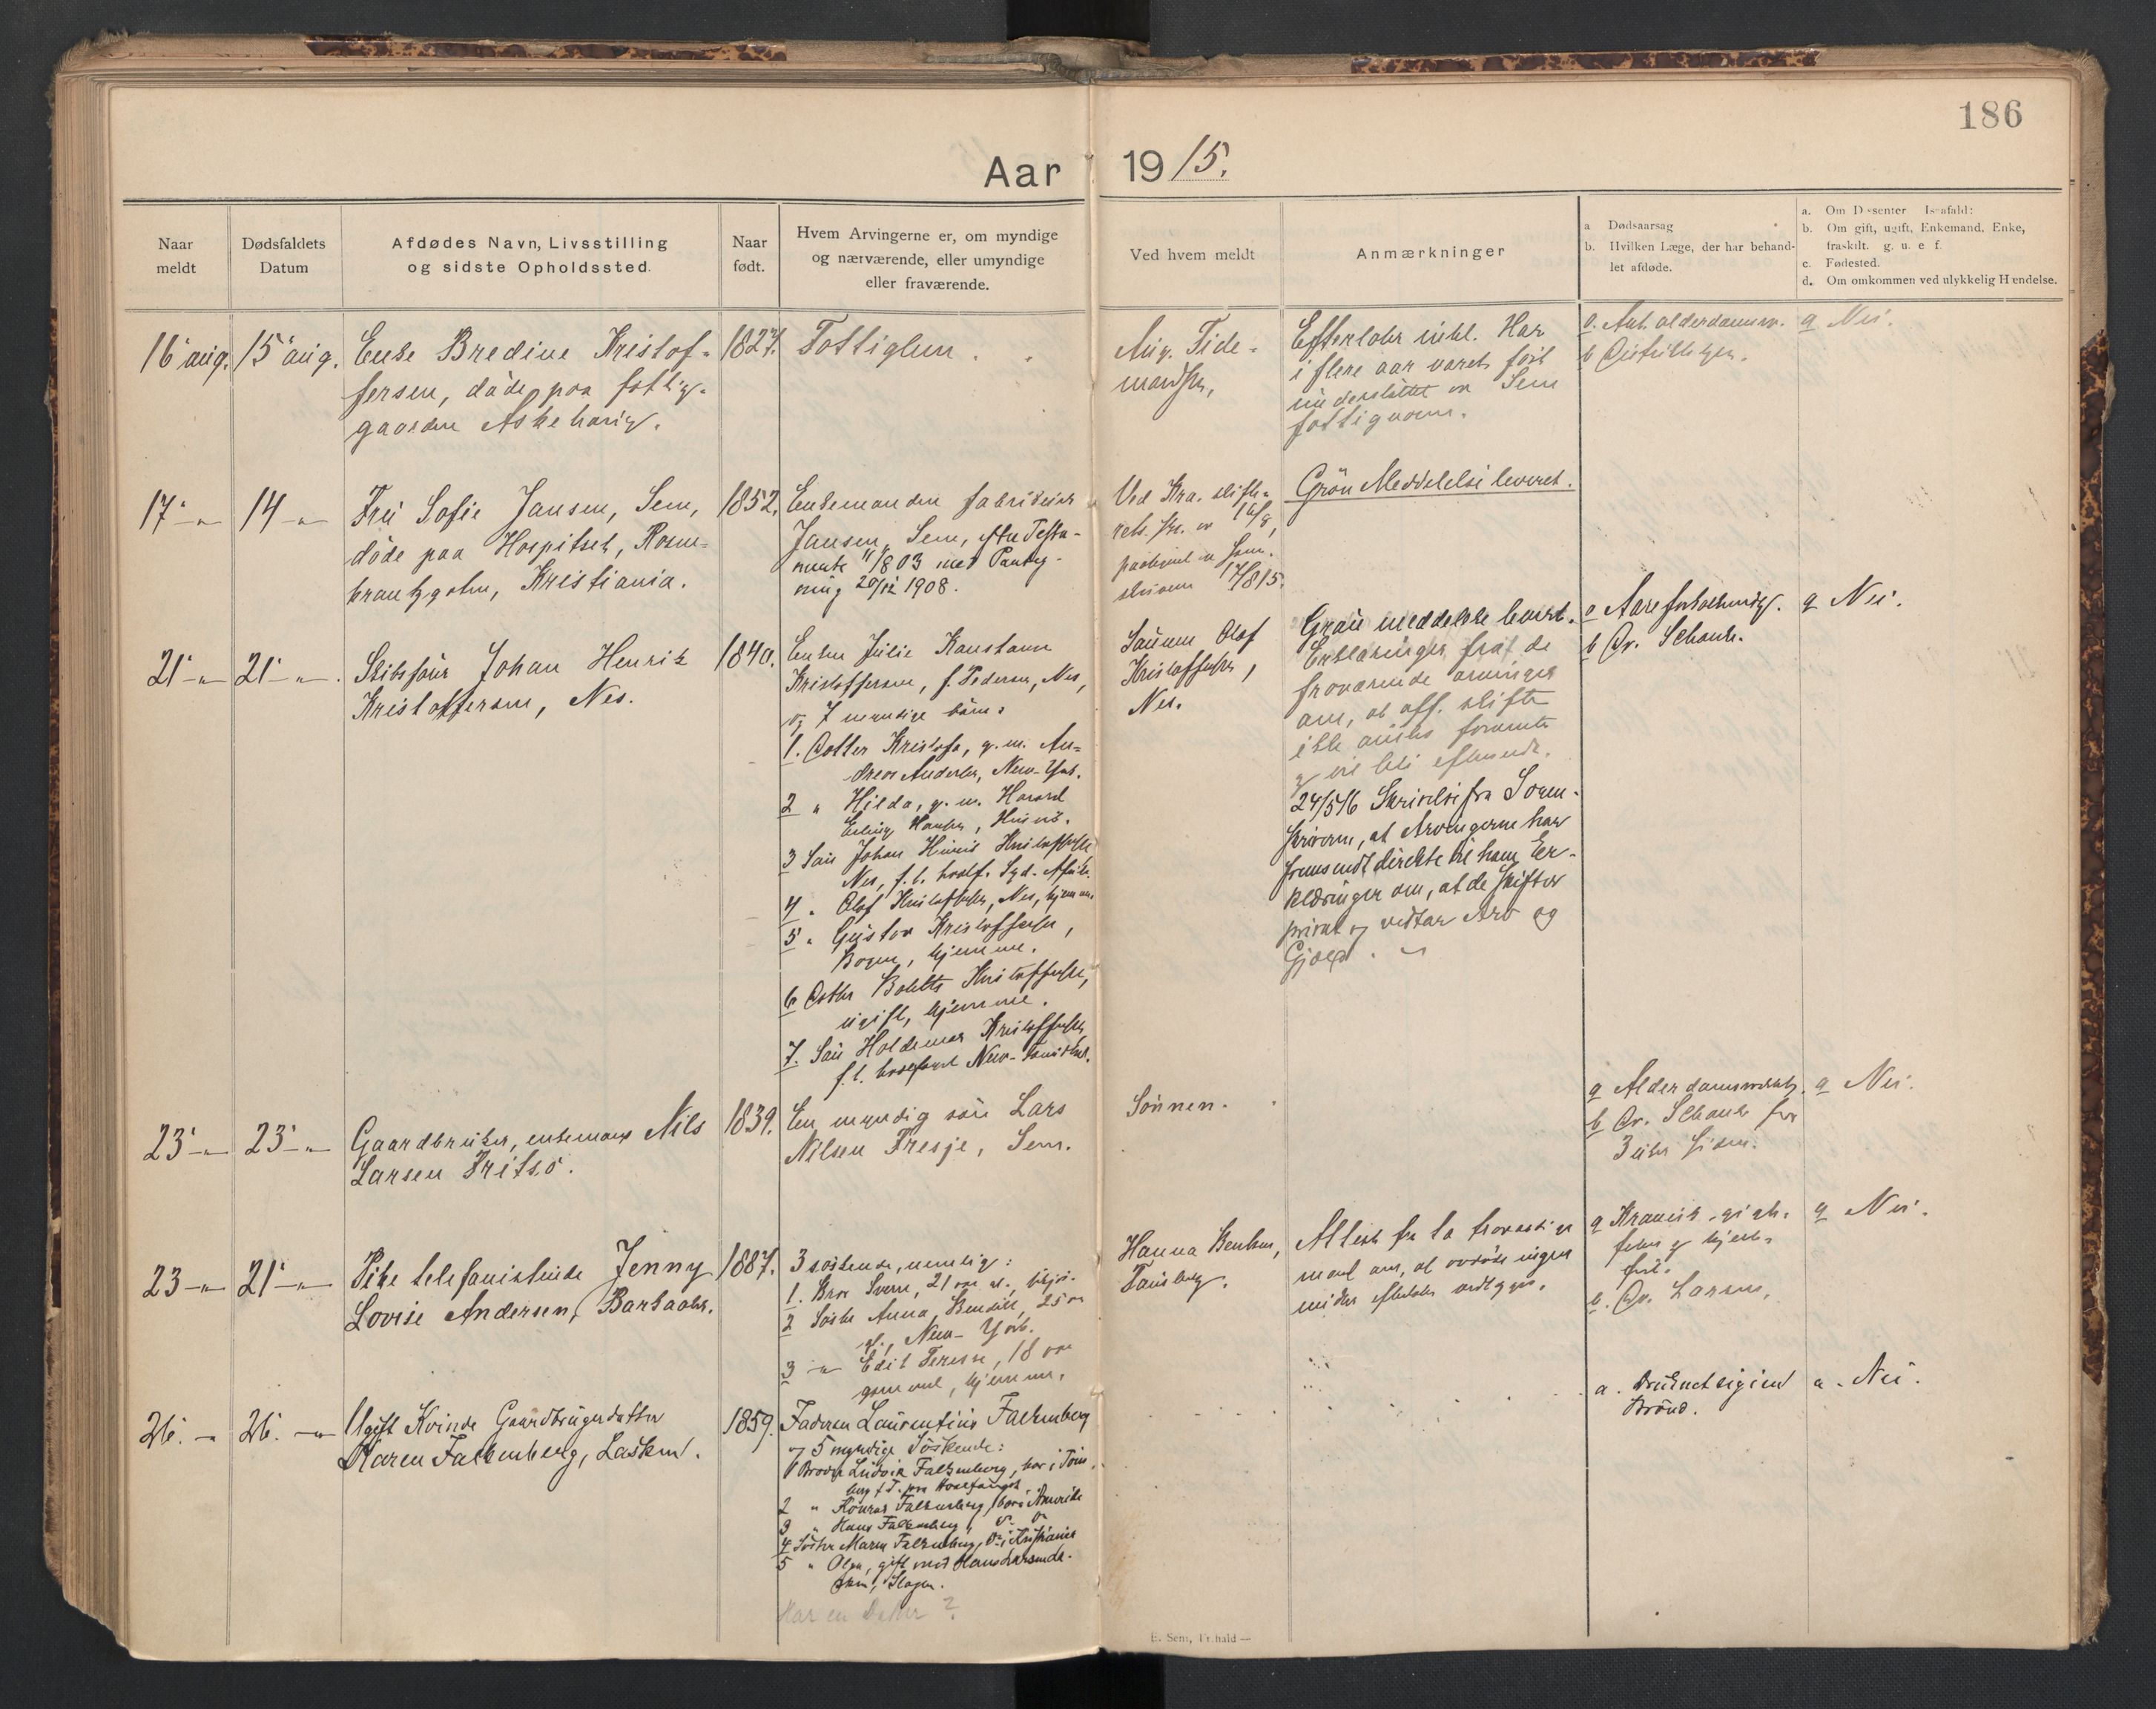 186
Aar 19 15.
Naar meldt
Dødsfaldets Datum
Afdødes Navn, Livsstilling og sidste Opholdssted.
Naar født.
Hvem Arvingerne er, om myndige og nærværende, eller umyndige eller fraværende.
Ved hvem meldt
Anmærkninger
a Dødsaarsag
b. Hvilken Læge, der har behandlet afdøde.
a. Om Dissenter Isaafald:
b. Om gift, ugift, Enkemand, Enke, fraskilt. g. u. e f.
c. Fødested.
d. Om omkommen ved ulykkelig Hændelse.
16 aug. 15 aug. Enke Bredine Kristof-
fersen, døde paa fattig-
gaarden Askehaug.
1827.
Fattiglem.
Aug. Tide-
mandsen,
Efterlader intet. Har
i flere aar været
understøttet av Sem
fattigvæsen.
a. Ant. alderdomssv.
b
a Nei.
17 - " 14 - " Fru Sofie Jansen, Sem,
døde paa Hospitset, Rosen-
krantzgaten, Kristiania.
1852.
Enkemanden fabrikeier
Jansen, Sem, efter Testa-
mente 11/8 03 med Paateg-
ning 20/12 1908.
Ved Kra. skifte-
rets skr. av 16/8,
paategnet av Soren-
skriveren 17/8 15.
Grøn Meddelelse leveret.
21 - " 21 - ". Skibsfører Johan Henrik
Kristoffersen, Nes.
1840.
Enken Julie Konstanse
Kristoffersen, f. Pedersen, Nes,
og 7 myndige børn:
1. Datter Kristofa, g. m. An-
dreas Andersen, New-York.
2 " Hilda, g. m. Harald
Erling Hansen,
3 Søn Johan Henrik Kristoffersen
Nes, f. t. hvalf. Syd-Afrika.
4 " Olaf Kristoffersen, Nes, hjemme.
5 " Gustav Kristoffersen,
hjemme.
6 Datter Bolette Kristoffersen,
ugift, hjemme.
7. Søn Haldemar Kristoffersen
f. t. hvalfangst New-
Sønnen Olaf
Kristoffersen,
Nes.
Grøn meddelelse levert.
Erklæringer fra de
fraværende arvinger
om, at off. skifte
ikke ønskes foretat
vil bli eftersendt.
24/5 16 Skrivelse fra Soren-
skriveren, at Arvingerne har
fremsendt direkte til ham Er-
klæringer om, at de skifter
privat og vedtar Arv og
Gjæld.
a Aareforkalkning.
b Dr. Schanke.
a Nei.
23 - " 23 - " Gaardbruker, enkemand Nils
Larsen Fritsø.
1839.
En myndig søn Lars
Nilsen Fresje, Sem.
Sønnen.
a Alderdomssvakh.
b Dr. Schanke for
3 uker siden.
a Nei.
23 - " 21 - " Pike telefonistinde Jenny
Lovise Andersen, Barkaaker.
1887.
3 søskende, nemlig:
1. Bror Sverre, 21 aar gl.,
2 Søster Anna Bendikte, 25 aar
gl., New-York.
3 - " Edit Terese, 18 aar
gammel, hjemme.
Hanna Bentsen,
Tønsberg.
Attest fra to troværdige
mænd om, at avdøde ingen
midler efterlater vedlegges.
a Kronisk
feber og hjerte-
feil.
b. Dr. Larsen,
a Nei.
26. - " 26. - " Ugift Kvinde Gaardbrugerdatter
Karen Falkenberg, Lasken.
1859.
Faderen Laurentius Falkenberg
og 5 myndige Søskende:
1 Broder Ludvik Falkenberg, bor i Tøns-
berg f. T. paa Hvalfangst
2 " Konrad Falkenberg, bor i Amerika
3 " Hans Falkenberg, do do
4 Søster Maren Falkenberg, do i Kristiania
5 " Olga, gift med Hans
Slagen.
Har en Datter?
a. Druknet sig i en
Brønd.
a. Nei.
E. Sem, Fr.hald —